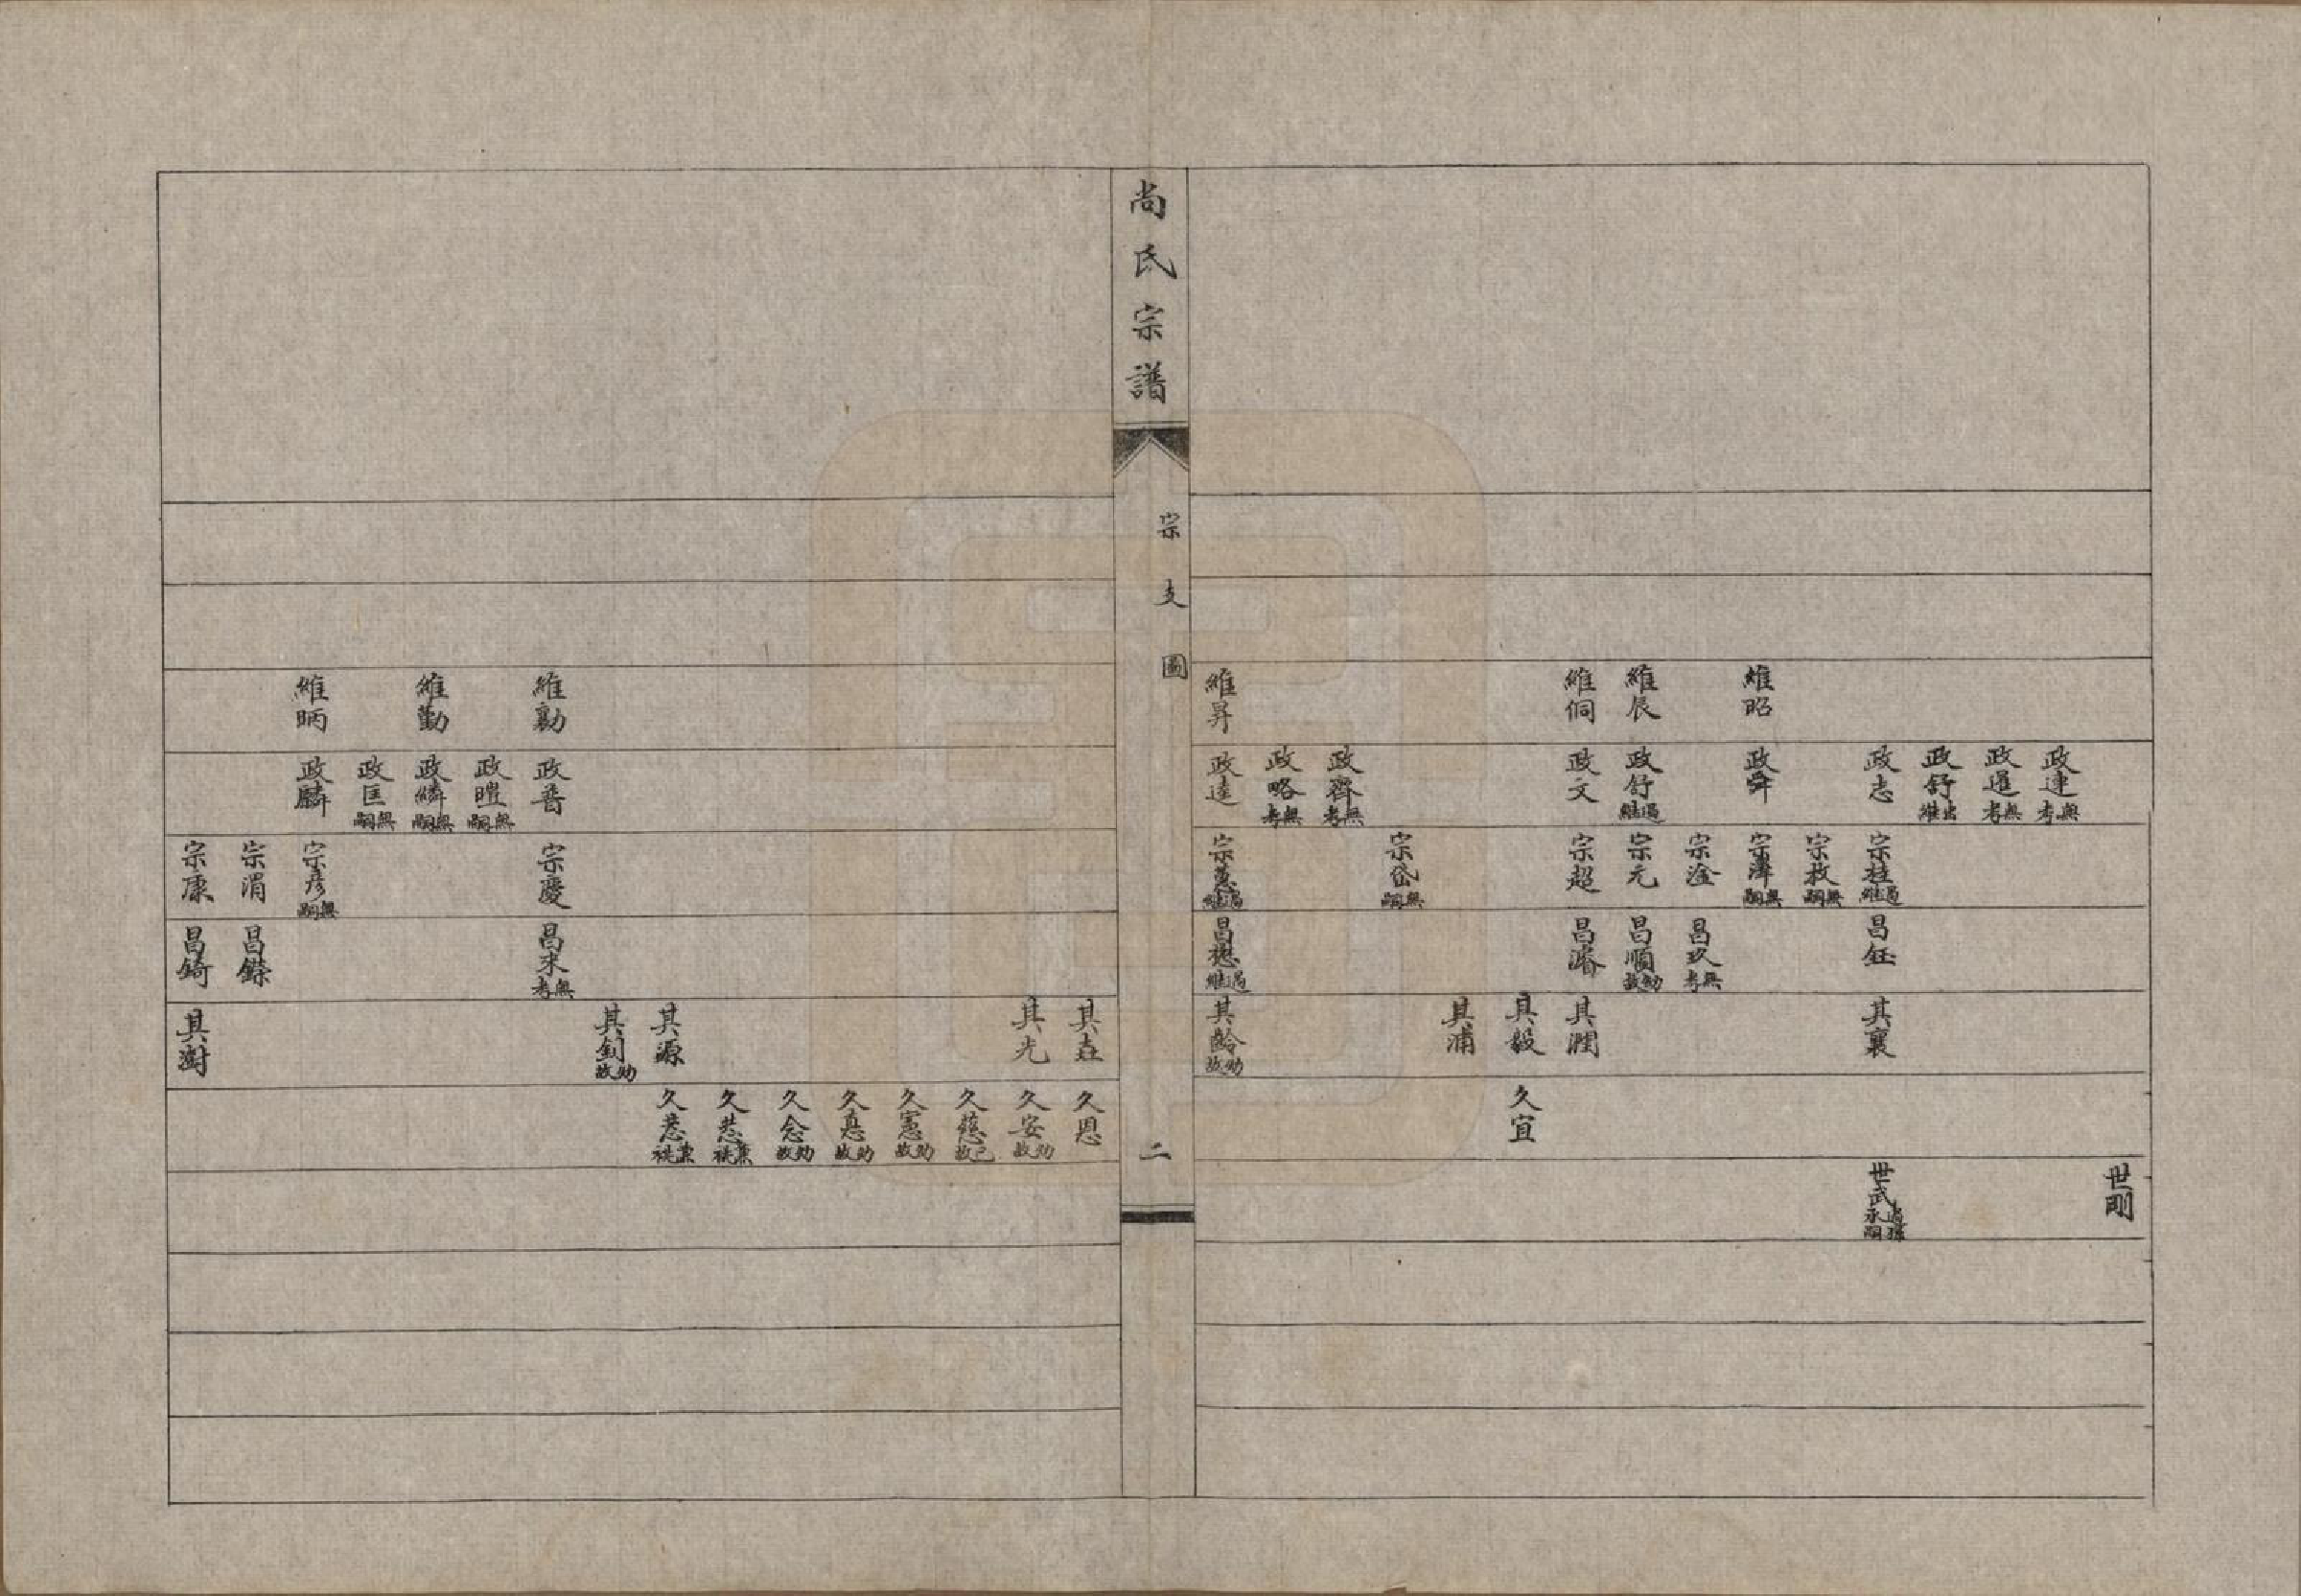 世剛
政連 無考
政暹 無考
政舒 出繼
政志
宗桂 過繼
昌鈺
其襄
世武 過孫承嗣
宗枚 無嗣
維昭
政舜
宗澤 無嗣
宗淦
昌玖 無考
維辰
政舒 過繼
宗元
昌順 幼故
維侗
政文
宗超
昌濬
其潤
其毅
久宜
其浦
宗岱 無嗣
政齊 無考
政略 無考
維昇
政達
宗蕙 過繼
昌懋 過繼
其齡 幼故
尚氏宗譜
宗支圖
二
其壵
久恩
其光
久安 幼故
久慈 已故
久憲 幼故
久惪 幼故
久念 幼故
久恭 兼祧
其源
久惹 兼祧
其釗 幼故
維勷
政普
宗慶
昌末 無考
政暟 無嗣
維勤
政麟 無嗣
政匡 無嗣
維昞
政麟
宗彥 無嗣
宗渭
昌鑅
宗康
昌錡
其澍